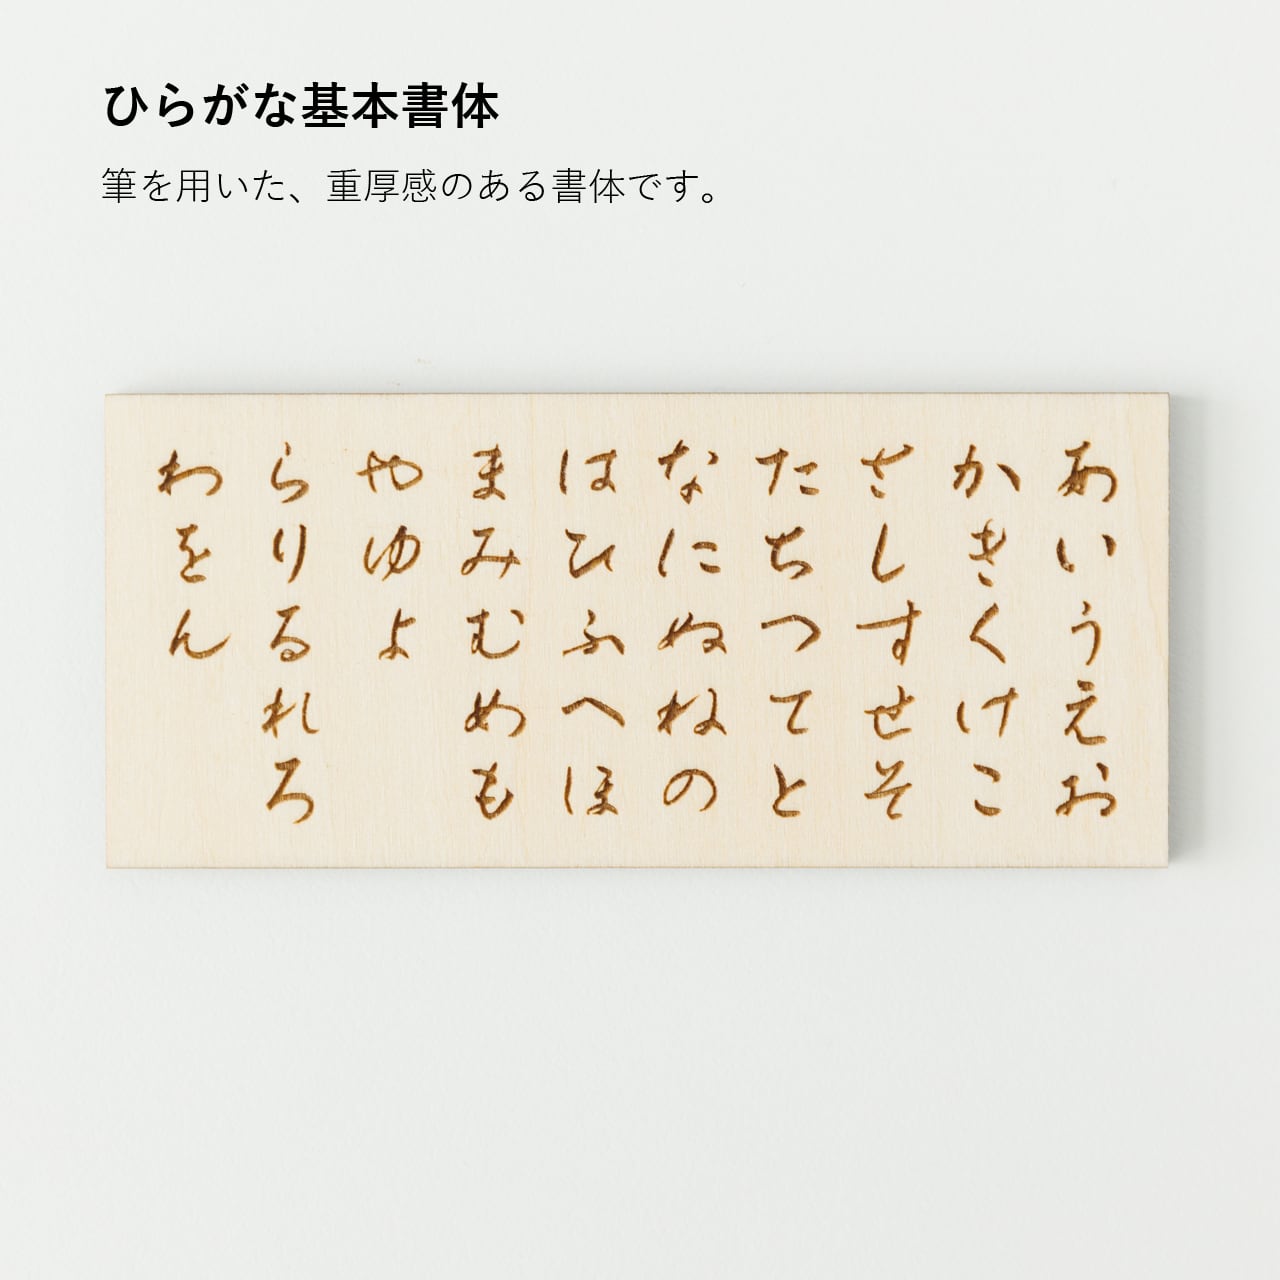 ひらがな基本書体
筆を用いた、重厚感のある書体です。
あいうえお
かきくけこ
さしすせそ
たちつてと
なにぬねの
はひふへほ
まみむめも
やゆよ
らりるれろ
わをん